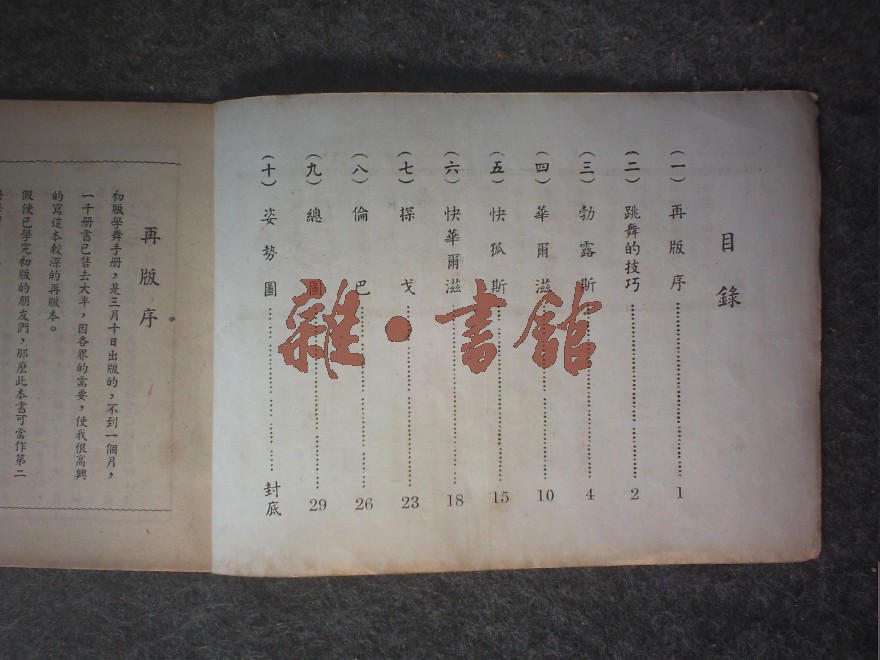 目錄
(一)再版序 1
(二)跳舞的技巧 2
(三)勃露斯 4
(四)華爾滋 10
(五)快狐斯 15
(六)快華爾滋 18
(七)探戈 23
(八)倫巴 26
(九)總圖 29
(十)姿勢圖 封底
再版序
初版學舞手册，是三月十日出版的，不到一個月，
一千册書已售去大半，因各界的需要，使我很高興
的寫這本較深的再版本。
假使已學完初版的朋友們，那麼此本書可當作第二
雜·書館